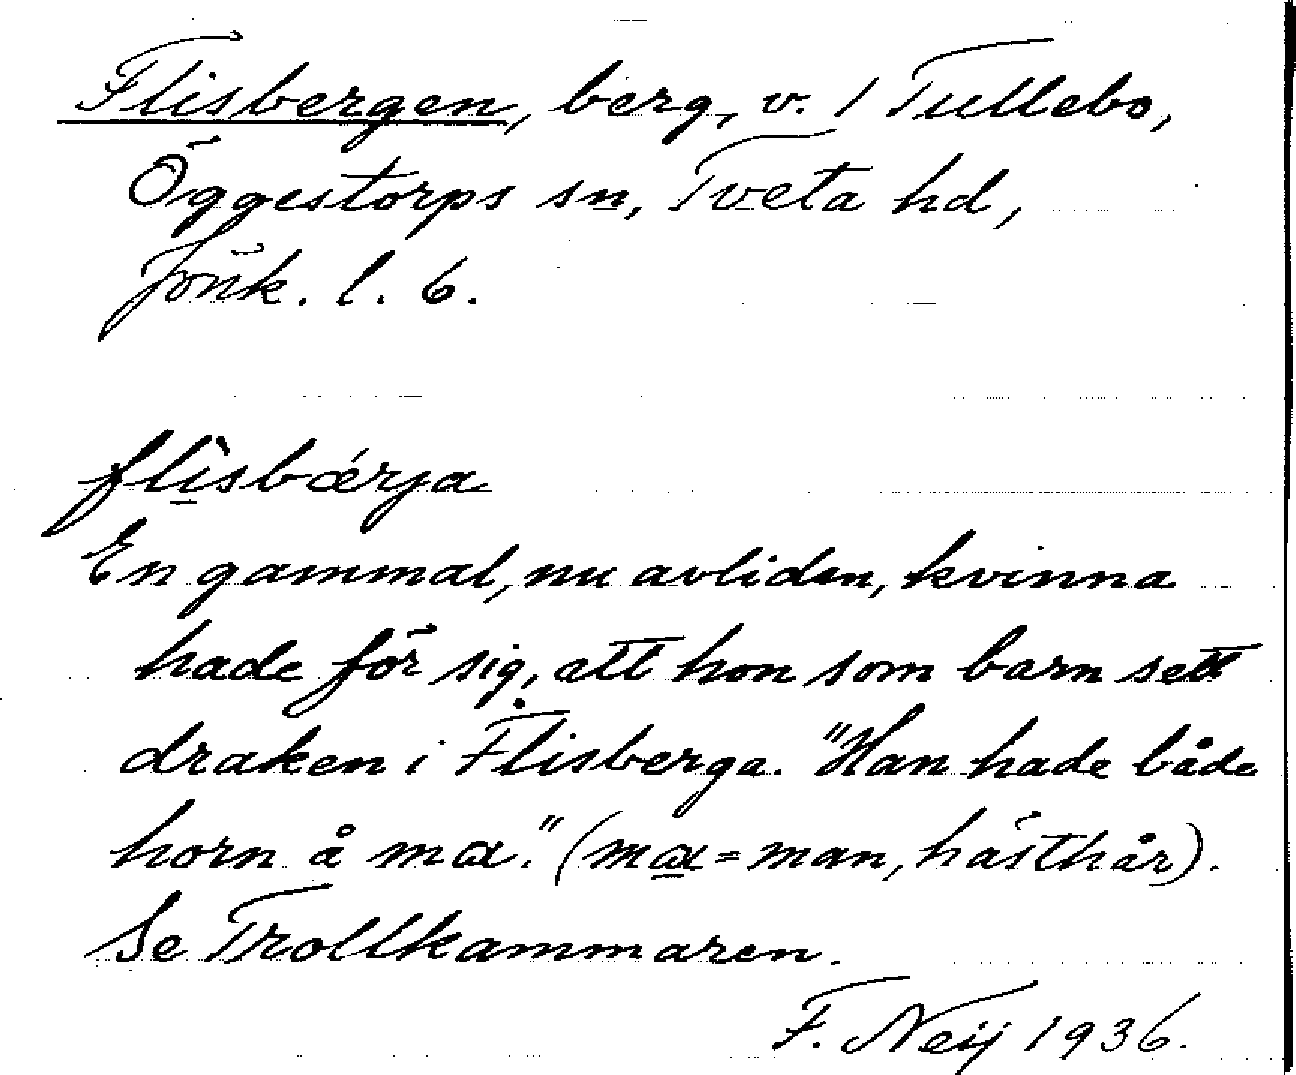 Flisbergen, berg, v. / Tullebo,
Öggestorps sn, Tveta hd,
Jönk. l. 6.
flìsbǽrja
En gammal, nu avliden, kvinna
hade för sig, att hon som barn sett
draken i Flisberga. "Han hade både
horn å mɑ." (mɑ = man, hästhår).
Se Trollkammaren.
F. Neij 1936.